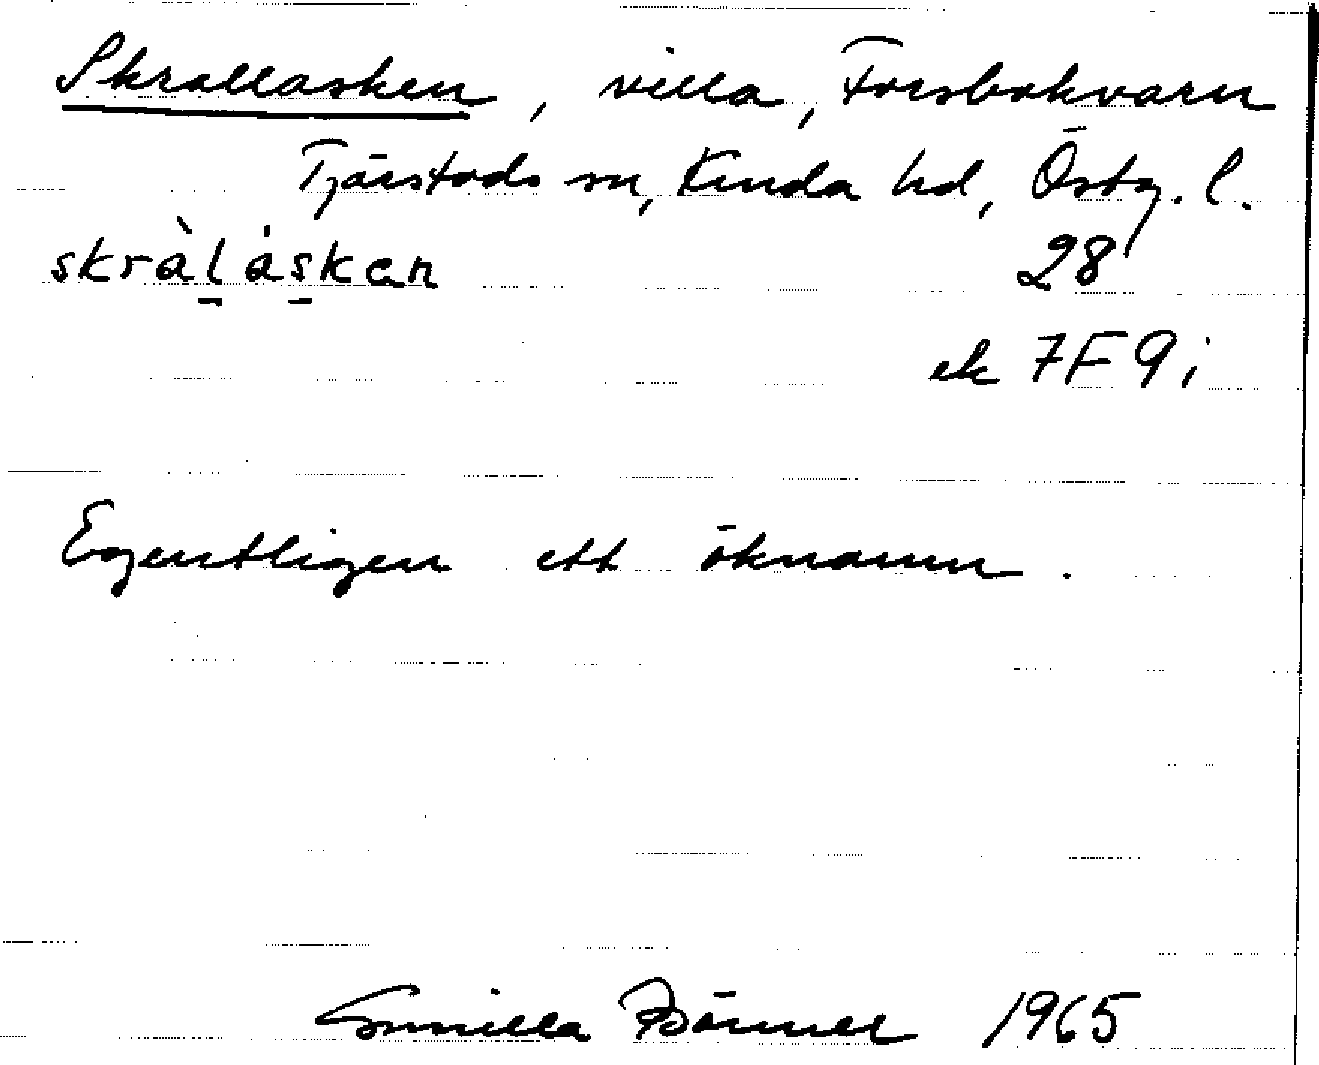 Skrallasken, villa, Forsbokvarn
Tjärstads sn, Kinda hd, Östg. l.
skràl̠ás̠ken 28
ek 7F9i
Egentligen ett öknamn.
Gunilla 1965